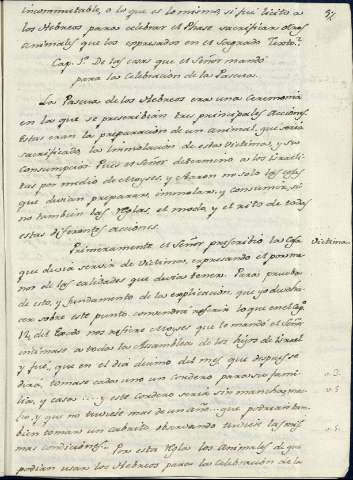 incommutable, o lo que es lo mismo, si fué licito a
los Hebreos para celebrar el Phase sacrificar otros
animales que los expresados en el Sagrado Texto?
Cap. 1º De las cosas que el Señor mandó
para la Celebracion de la Pascua.
La Pascua de los Hebreos era una Ceremonia
en la que se prescribian tres principales acciones.
Estas eran la preparacion de un animal, que seria
sacrificado, la inmolacion de esta Victima, y su
consumpcion. Pues el Señor determinó a los Israeli-
tas por medio de Moyses, y Aaron no solo las cosas
que devian preparar, immolar, y consumir, si
no tambien las Reglas, el modo, y el rito de todas
estas diferentes acciones.
Primeramente el Señor prescribió la cosa
Victima.
que devia servir de Victima, expresando el porme-
nor de las calidades que devia tener. Para prueba
de esto, y fundamento de la explicacion, que yo de
cer sobre este punto, convendrá referir lo que en el Cap.
12 del Exodo nos refiere Moyses que le mandó el Señor
intimase a toda la Asamblea de los hijos de Israel
y fué, que en el dia decimo del mes que despues se
dirá, tomase cada uno un cordero para su fami-
v. 3.
lia, y casa ... y este cordero seria sin mancha, ma-
v. 5
cho, y que no tuviese mas de un año ... que podrian tam-
bien tomar un cabrito observando tuviese las mis-
v. 5.
mas condiciones. Por esta Regla los animales de que
podian usar los Hebreos para la Celebracion de la